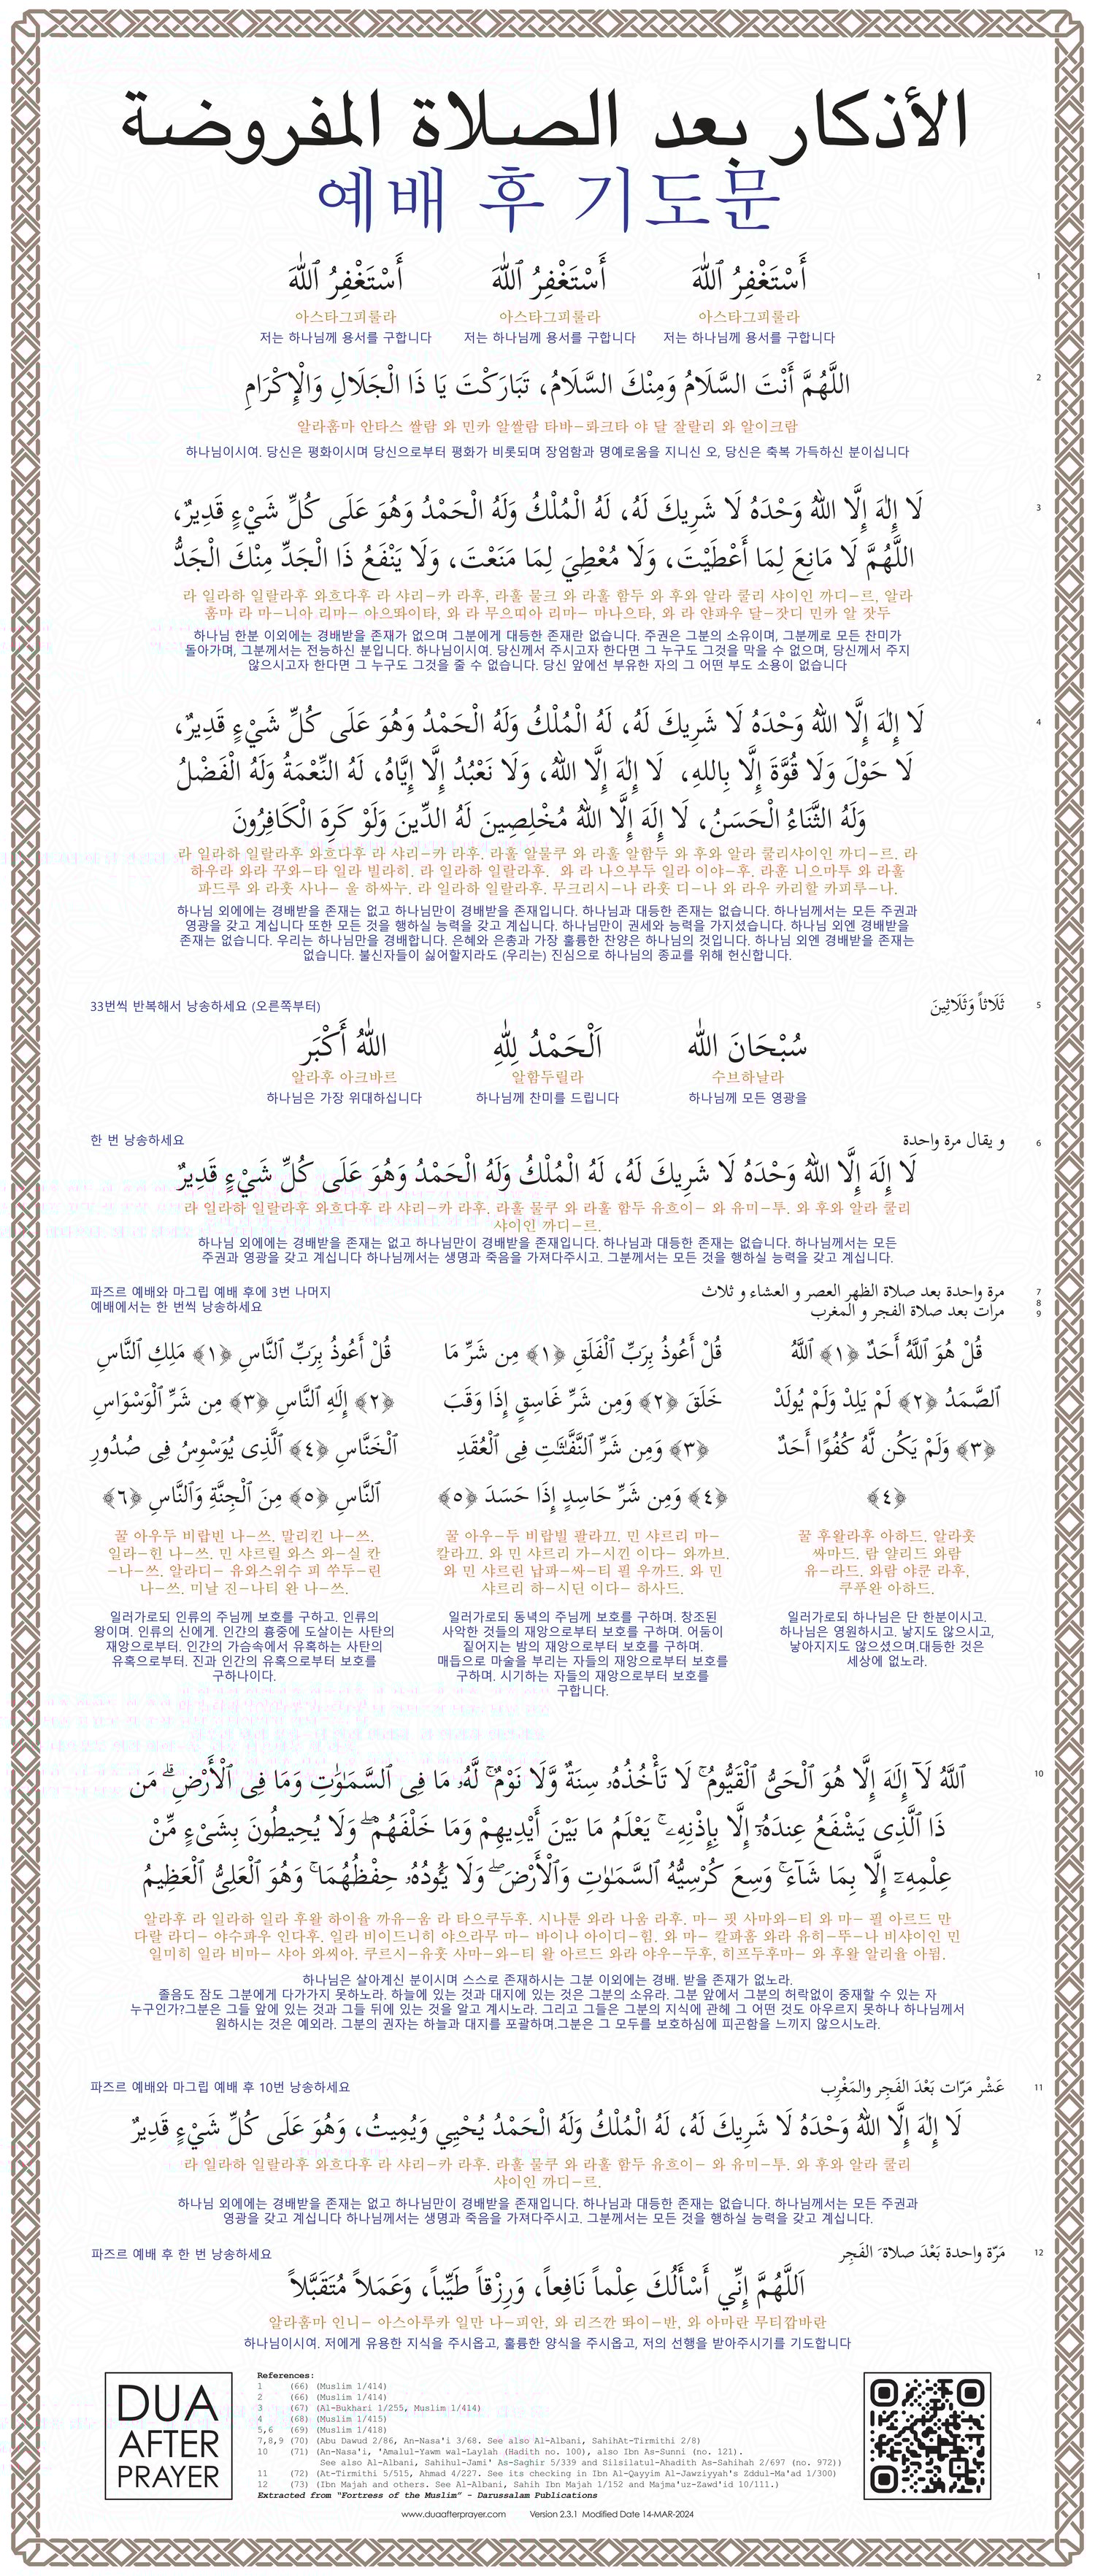 الأذكار بعد الصلاة المفروضة
예배 후 기도문
1
أَسْتَغْفِرُ ٱللّٰهَ أَسْتَغْفِرُ ٱللّٰهَ أَسْتَغْفِرُ ٱللّٰهَ
아스타그피룰라 아스타그피룰라 아스타그피룰라
저는 하나님께 용서를 구합니다 저는 하나님께 용서를 구합니다 저는 하나님께 용서를 구합니다
2
اللَّهُمَّ أَنْتَ السَّلَامُ وَمِنْكَ السَّلَامُ، تَبَارَكْتَ يَا ذَا الْجَلَالِ وَالْإِكْرَامِ
알라훔마 안타스 쌀람 와 민카 알쌀람 타바-롸크타 야 달 잘랄리 와 알이크람
하나님이시여. 당신은 평화이시며 당신으로부터 평화가 비롯되며 장엄함과 명예로움을 지니신 오, 당신은 축복 가득하신 분이십니다
3
لَا إِلٰهَ إِلَّا اللهُ وَحْدَهُ لَا شَرِيكَ لَهُ، لَهُ الْمُلْكُ وَلَهُ الْحَمْدُ وَهُوَ عَلَى كُلِّ شَيْءٍ قَدِيرٌ،
اللَّهُمَّ لَا مَانِعَ لِمَا أَعْطَيْتَ، وَلَا مُعْطِيَ لِمَا مَنَعْتَ، وَلَا يَنْفَعُ ذَا الْجَدِّ مِنْكَ الْجَدُّ
라 일라하 일랄라후 와흐다후 라 샤리-카 라후, 라훌 물크 와 라훌 함두 와 후와 알라 쿨리 샤이인 까디-르, 알라
훔마 라 마-니아 리마- 아으똬이타, 와 라 무으띠아 리마- 마나으타, 와 라 얀파우 달-잣디 민카 알 잣두
하나님 한분 이외에는 경배받을 존재가 없으며 그분에게 대등한 존재란 없습니다. 주권은 그분의 소유이며, 그분께로 모든 찬미가
돌아가며, 그분께서는 전능하신 분입니다. 하나님이시여. 당신께서 주시고자 한다면 그 누구도 그것을 막을 수 없으며, 당신께서 주지
않으시고자 한다면 그 누구도 그것을 줄 수 없습니다. 당신 앞에선 부유한 자의 그 어떤 부도 소용이 없습니다
4
لَا إِلٰهَ إِلَّا اللهُ وَحْدَهُ لَا شَرِيكَ لَهُ، لَهُ الْمُلْكُ وَلَهُ الْحَمْدُ وَهُوَ عَلَى كُلِّ شَيْءٍ قَدِيرٌ،
لَا حَوْلَ وَلَا قُوَّةَ إِلَّا بِاللهِ، لَا إِلٰهَ إِلَّا اللهُ، وَلَا نَعْبُدُ إِلَّا إِيَّاهُ، لَهُ النِّعْمَةُ وَلَهُ الْفَضْلُ
وَلَهُ الثَّنَاءُ الْحَسَنُ، لَا إِلَهَ إِلَّا اللهُ مُخْلِصِينَ لَهُ الدِّينَ وَلَوْ كَرِهَ الْكَافِرُونَ
라 일라하 일랄라후 와흐다후 라 샤리-카 라후. 라훌 알물쿠 와 라훌 알함두 와 후와 알라 쿨리샤이인 까디-르. 라
하우라 와라 꾸와-타 일라 빌라히. 라 일라하 일랄라후. 와 라 나으부두 일라 이야-후. 라훈 니으마투 와 라훌
파드루 와 라훗 사나- 울 하싸누. 라 일라하 일랄라후. 무크리시-나 라훗 디-나 와 라우 카리할 카피루-나.
하나님 외에에는 경배받을 존재는 없고 하나님만이 경배받을 존재입니다. 하나님과 대등한 존재는 없습니다. 하나님께서는 모든 주권과
영광을 갖고 계십니다 또한 모든 것을 행하실 능력을 갖고 계십니다. 하나님만이 권세와 능력을 가지셨습니다. 하나님 외엔 경배받을
존재는 없습니다. 우리는 하나님만을 경배합니다. 은혜와 은총과 가장 훌륭한 찬양은 하나님의 것입니다. 하나님 외엔 경배받을 존재는
없습니다. 불신자들이 싫어할지라도 (우리는) 진심으로 하나님의 종교를 위해 헌신합니다.
33번씩 반복해서 낭송하세요 (오른쪽부터) ثَلَاثاً وَثَلَاثِينَ 5
سُبْحَانَ اللّٰه اَلْحَمْدُ لِلّٰهِ اللّٰهُ أَكْبَر
알라후 아크바르 알함두릴라 수브하날라
하나님은 가장 위대하십니다 하나님께 찬미를 드립니다 하나님께 모든 영광을
한 번 낭송하세요 و يقال مرة واحدة 6
لَا إِلَهَ إِلَّا اللهُ وَحْدَهُ لَا شَرِيكَ لَهُ، لَهُ الْمُلْكُ وَلَهُ الْحَمْدُ وَهُوَ عَلَى كُلِّ شَيْءٍ قَدِيرٌ
라 일라하 일랄라후 와흐다후 라 샤리-카 라후. 라훌 물쿠 와 라훌 함두 유흐이- 와 유미-투. 와 후와 알라 쿨리
샤이인 까디-르.
하나님 외에에는 경배받을 존재는 없고 하나님만이 경배받을 존재입니다. 하나님과 대등한 존재는 없습니다. 하나님께서는 모든
주권과 영광을 갖고 계십니다 하나님께서는 생명과 죽음을 가져다주시고. 그분께서는 모든 것을 행하실 능력을 갖고 계십니다.
파즈르 예배와 마그립 예배 후에 3번 나머지
예배에서는 한 번씩 낭송하세요
مرة واحدة بعد صلاة الظهر العصر و العشاء و ثلاث
مرات بعد صلاة الفجر و المغرب
7
8
9
قُلْ هُوَ ٱللَّهُ أَحَدٌ ﴿١﴾ ٱللَّهُ
ٱلصَّمَدُ ﴿٢﴾ لَمْ يَلِدْ وَلَمْ يُولَدْ
﴿٣﴾ وَلَمْ يَكُن لَّهُ كُفُوًا أَحَدٌ
﴿٤﴾
꿀 후왈라후 아하드. 알라훗
싸마드. 람 얄리드 와람
유-라드. 와람 야쿤 라후,
쿠푸완 아하드.
일러가로되 하나님은 단 한분이시고.
하나님은 영원하시고. 낳지도 않으시고,
낳아지지도 않으셨으며.대등한 것은
세상에 없노라.
قُلْ أَعُوذُ بِرَبِّ ٱلْفَلَقِ ﴿١﴾ مِن شَرِّ مَا
خَلَقَ ﴿٢﴾ وَمِن شَرِّ غَاسِقٍ إِذَا وَقَبَ
﴿٣﴾ وَمِن شَرِّ ٱلنَّفَّٰثَٰتِ فِى ٱلْعُقَدِ
﴿٤﴾ وَمِن شَرِّ حَاسِدٍ إِذَا حَسَدَ ﴿٥﴾
꿀 아우-두 비랍빌 팔라끄. 민 샤르리 마-
칼라끄. 와 민 샤르리 가-시낀 이다- 와까브.
와 민 샤르린 납파-싸-티 필 우까드. 와 민
샤르리 하-시딘 이다- 하사드.
일러가로되 동녘의 주님께 보호를 구하며. 창조된
사악한 것들의 재앙으로부터 보호를 구하며. 어둠이
짙어지는 밤의 재앙으로부터 보호를 구하며.
매듭으로 마술을 부리는 자들의 재앙으로부터 보호를
구하며. 시기하는 자들의 재앙으로부터 보호를
구합니다.
قُلْ أَعُوذُ بِرَبِّ ٱلنَّاسِ ﴿١﴾ مَلِكِ ٱلنَّاسِ
﴿٢﴾ إِلَٰهِ ٱلنَّاسِ ﴿٣﴾ مِن شَرِّ ٱلْوَسْوَاسِ
ٱلْخَنَّاسِ ﴿٤﴾ ٱلَّذِى يُوَسْوِسُ فِى صُدُورِ
ٱلنَّاسِ ﴿٥﴾ مِنَ ٱلْجِنَّةِ وَٱلنَّاسِ ﴿٦﴾
꿀 아우두 비랍빈 나-쓰. 말리킨 나-쓰.
일라-힌 나-쓰. 민 샤르릴 와스 와-실 칸
-나-쓰. 알라디- 유와스위수 피 쑤두-린
나-쓰. 미날 진-나티 완 나-쓰.
일러가로되 인류의 주님께 보호를 구하고. 인류의
왕이며. 인류의 신에게. 인간의 흉중에 도살이는 사탄의
재앙으로부터. 인간의 가슴속에서 유혹하는 사탄의
유혹으로부터. 진과 인간의 유혹으로부터 보호를
구하나이다.
10
ٱللَّهُ لَآ إِلَٰهَ إِلَّا هُوَ ٱلْحَىُّ ٱلْقَيُّومُ ۚ لَا تَأْخُذُهُۥ سِنَةٌ وَّلَا نَوْمٌ ۚ لَّهُۥ مَا فِى ٱلسَّمَٰوَٰتِ وَمَا فِى ٱلْأَرْضِ ۗ مَن
ذَا ٱلَّذِى يَشْفَعُ عِندَهُۥٓ إِلَّا بِإِذْنِهِۦ ۚ يَعْلَمُ مَا بَيْنَ أَيْدِيهِمْ وَمَا خَلْفَهُمْ ۖ وَلَا يُحِيطُونَ بِشَىْءٍ مِّنْ
عِلْمِهِۦٓ إِلَّا بِمَا شَآءَ ۚ وَسِعَ كُرْسِيُّهُ ٱلسَّمَٰوَٰتِ وَٱلْأَرْضَ ۖ وَلَا يَـُٔودُهُۥ حِفْظُهُمَا ۚ وَهُوَ ٱلْعَلِىُّ ٱلْعَظِيمُ
알라후 라 일라하 일라 후왈 하이율 까유-움 라 타으쿠두후. 시나툰 와라 나움 라후. 마- 핏 사마와-티 와 마- 필 아르드 만
다랄 라디- 야수파우 인다후. 일라 비이드니히 야으라무 마- 바이나 아이디-힘. 와 마- 칼파훔 와라 유히-뚜-나 비샤이인 민
일미히 일라 비마- 샤아 와씨아. 쿠르시-유훗 사마-와-티 왈 아르드 와라 야우-두후, 히프두후마- 와 후왈 알리율 아딤.
하나님은 살아계신 분이시며 스스로 존재하시는 그분 이외에는 경배. 받을 존재가 없노라.
졸음도 잠도 그분에게 다가가지 못하노라. 하늘에 있는 것과 대지에 있는 것은 그분의 소유라. 그분 앞에서 그분의 허락없이 중재할 수 있는 자
누구인가?그분은 그들 앞에 있는 것과 그들 뒤에 있는 것을 알고 계시노라. 그리고 그들은 그분의 지식에 관헤 그 어떤 것도 아우르지 못하나 하나님께서
원하시는 것은 예외라. 그분의 권자는 하늘과 대지를 포괄하며.그분은 그 모두를 보호하심에 피곤함을 느끼지 않으시노라.
파즈르 예배와 마그립 예배 후 10번 낭송하세요 عَشْر مَرّات بَعْدَ الفَجِر والمَغْرِب 11
لَا إِلٰهَ إِلَّا اللهُ وَحْدَهُ لَا شَرِيكَ لَهُ، لَهُ الْمُلْكُ وَلَهُ الْحَمْدُ يُحْيِي وَيُمِيتُ، وَهُوَ عَلَى كُلِّ شَيْءٍ قَدِيرٌ
라 일라하 일랄라후 와흐다후 라 샤리-카 라후. 라훌 물쿠 와 라훌 함두 유흐이- 와 유미-투. 와 후와 알라 쿨리
샤이인 까디-르.
하나님 외에에는 경배받을 존재는 없고 하나님만이 경배받을 존재입니다. 하나님과 대등한 존재는 없습니다. 하나님께서는 모든 주권과
영광을 갖고 계십니다 하나님께서는 생명과 죽음을 가져다주시고. 그분께서는 모든 것을 행하실 능력을 갖고 계십니다.
파즈르 예배 후 한 번 낭송하세요 مَرّة واحدة بَعْدَ صلاة َ الفَجِر 12
اَللَّهُمَّ إِنِّي أَسْأَلُكَ عِلْماً نَافِعاً، وَرِزْقاً طَيِّباً، وَعَمَلاً مُتَقَبَّلاً
알라훔마 인니- 아스아루카 일만 나-피안, 와 리즈깐 똬이-반, 와 아마란 무티깝바란
하나님이시여. 저에게 유용한 지식을 주시옵고, 훌륭한 양식을 주시옵고, 저의 선행을 받아주시기를 기도합니다
DUA
AFTER
PRAYER
References:
1 (66) (Muslim 1/414)
2 (66) (Muslim 1/414)
3 (67) (Al-Bukhari 1/255, Muslim 1/414)
4 (68) (Muslim 1/415)
5,6 (69) (Muslim 1/418)
7,8,9 (70) (Abu Dawud 2/86, An-Nasa'i 3/68. See also Al-Albani, SahihAt-Tirmithi 2/8)
10 (71) (An-Nasa'i, 'Amalul-Yawm wal-Laylah (Hadith no. 100), also Ibn As-Sunni (no. 121).
See also Al-Albani, Sahihul-Jami' As-Saghir 5/339 and Silsilatul-Ahadith As-Sahihah 2/697 (no. 972))
11 (72) (At-Tirmithi 5/515, Ahmad 4/227. See its checking in Ibn Al-Qayyim Al-Jawziyyah's Zddul-Ma'ad 1/300)
12 (73) (Ibn Majah and others. See Al-Albani, Sahih Ibn Majah 1/152 and Majma'uz-Zawd'id 10/111.)
Extracted from "Fortress of the Muslim" - Darussalam Publications
www.duaafterprayer.com Version 2.3.1 Modified Date 14-MAR-2024